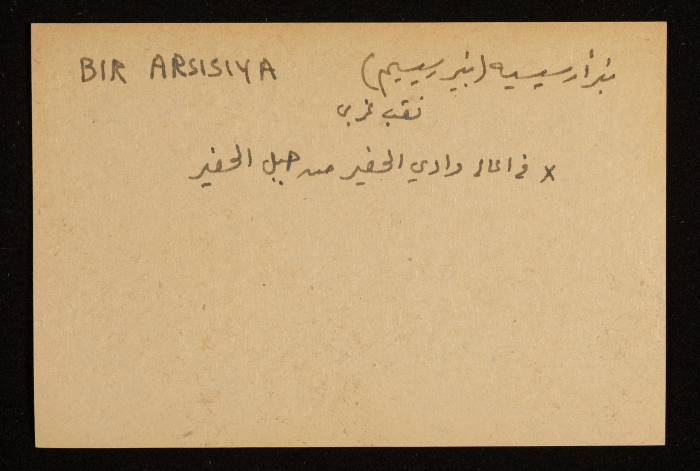 BIR ARSISIYA بئر أرسيسيه (بئر رسيسم)
نقب غربي
x في اعالي وادي الحفير من جبل الحفير